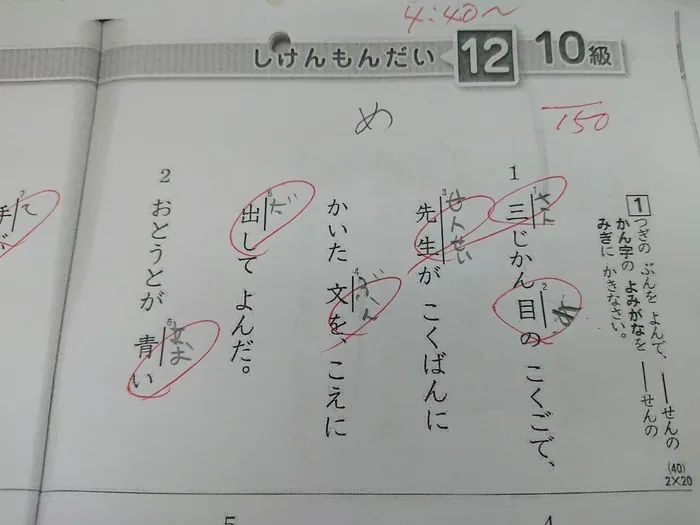 4:40〜
しけんもんだい 12 10級
め
150
1 つぎの ぶんを よんで、――せんの
かん字の よみがなを ――せんの
みぎに かきなさい。
(40)
2×20
1 三じかん目の こくごで、
1 さん
2 め
先生が こくばんに
3 せんせい
かいた 文を、こえに
4 ぶん
出して よんだ。
5 だ
2 おとうとが 青い
6 あお
7 て
手
5
4